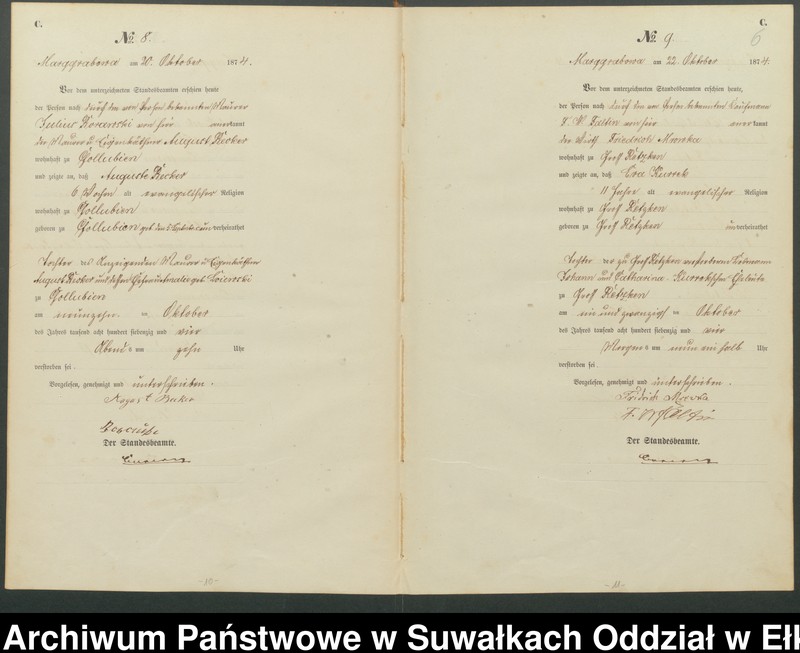 C.
№ 8.
Marggrabowa am 20. Oktober 1874.
Vor dem unterzeichneten Standesbeamten erschien heute
der Person nach durch den von Person bekannten Maurer
Julius von hier anerkannt
der Maurer u. Eigenkäthner August Becker
wohnhaft zu Gollubien
und zeigte an, daß Auguste Becker
6 Wochen alt evangelischer Religion
wohnhaft zu Gollubien
geboren zu Gollubien verheirathet
Tochter des Anzeigenden Maurer u. Eigenkäthner
August Becker und dessen geb.
zu Gollubien
am neunzehn ten Oktober
des Jahres tausend acht hundert siebenzig und vier
Abends um zehn Uhr
verstorben sei.
Vorgelesen, genehmigt und unterschrieben.
August
Der Standesbeamte.
- 10 -
C.
6
№ 9
Marggrabowa am 22. Oktober 1874.
Vor dem unterzeichneten Standesbeamten erschien heute,
der Person nach durch den von Person bekannten Kaufmann
von hier anerkannt
der Wirth Friedrich
wohnhaft zu Groß Retzken
und zeigte an, daß Eva
11 Jahre alt evangelischer Religion
wohnhaft zu Groß Retzken
geboren zu Groß Retzken unverheirathet
Tochter der zu Groß Retzken
Johann und Catharina Eheleute
zu Groß Retzken
am ein und zwanzigsten Oktober
des Jahres tausend acht hundert siebenzig und vier
Morgens um neun ein halb Uhr
verstorben sei.
Vorgelesen, genehmigt und unterschrieben.
Fridrich
Der Standesbeamte.
- 11 -
Archiwum Państwowe w Suwałkach Oddział w Ełk